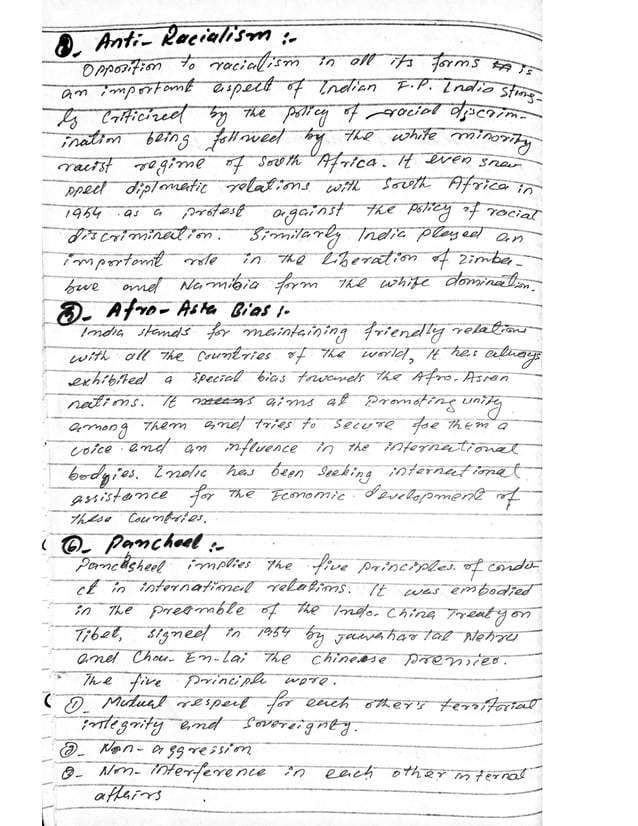 Anti-Racialism :-
Opposition to racialism in all its forms is
an important aspect of Indian F.P. India strong-
ly Criticized by the policy of racial discrim-
ination being followed by the white minority
racist regime of South Africa. It even snew
pped diplomatic relations with South Africa in
1954 as a protest against the policy of racial
discrimination. Similarly India played an
important role in the liberation of Zimba-
bwe and Namibia form the white domination.
5- Afro-Asia Bias :-
India stands for maintaining friendly relations
with all the countries of the world, It has always
exhibited a special bias towards the Afro-Asian
nations. It aims at promoting unity
among them and tries to secure foe them a
voice and an influence in the international
bodyies. India has been seeking international
assistance for the Economic development of
these Countries.
6- Pancheel :-
Panchsheel implies the five principles of condu
ct in international relations. It was embodied
in the preamble of the Indo-China Treaty on
Tibet, signed in 1954 by Jawahar lal Nehru
and Chou-En-Lai the chinese premier.
The five principle were.
1- Mutual respect for each other's territorial
integrity and Sovereignty.
2- Non-aggression
3- Non-interference in each other internal
affairs